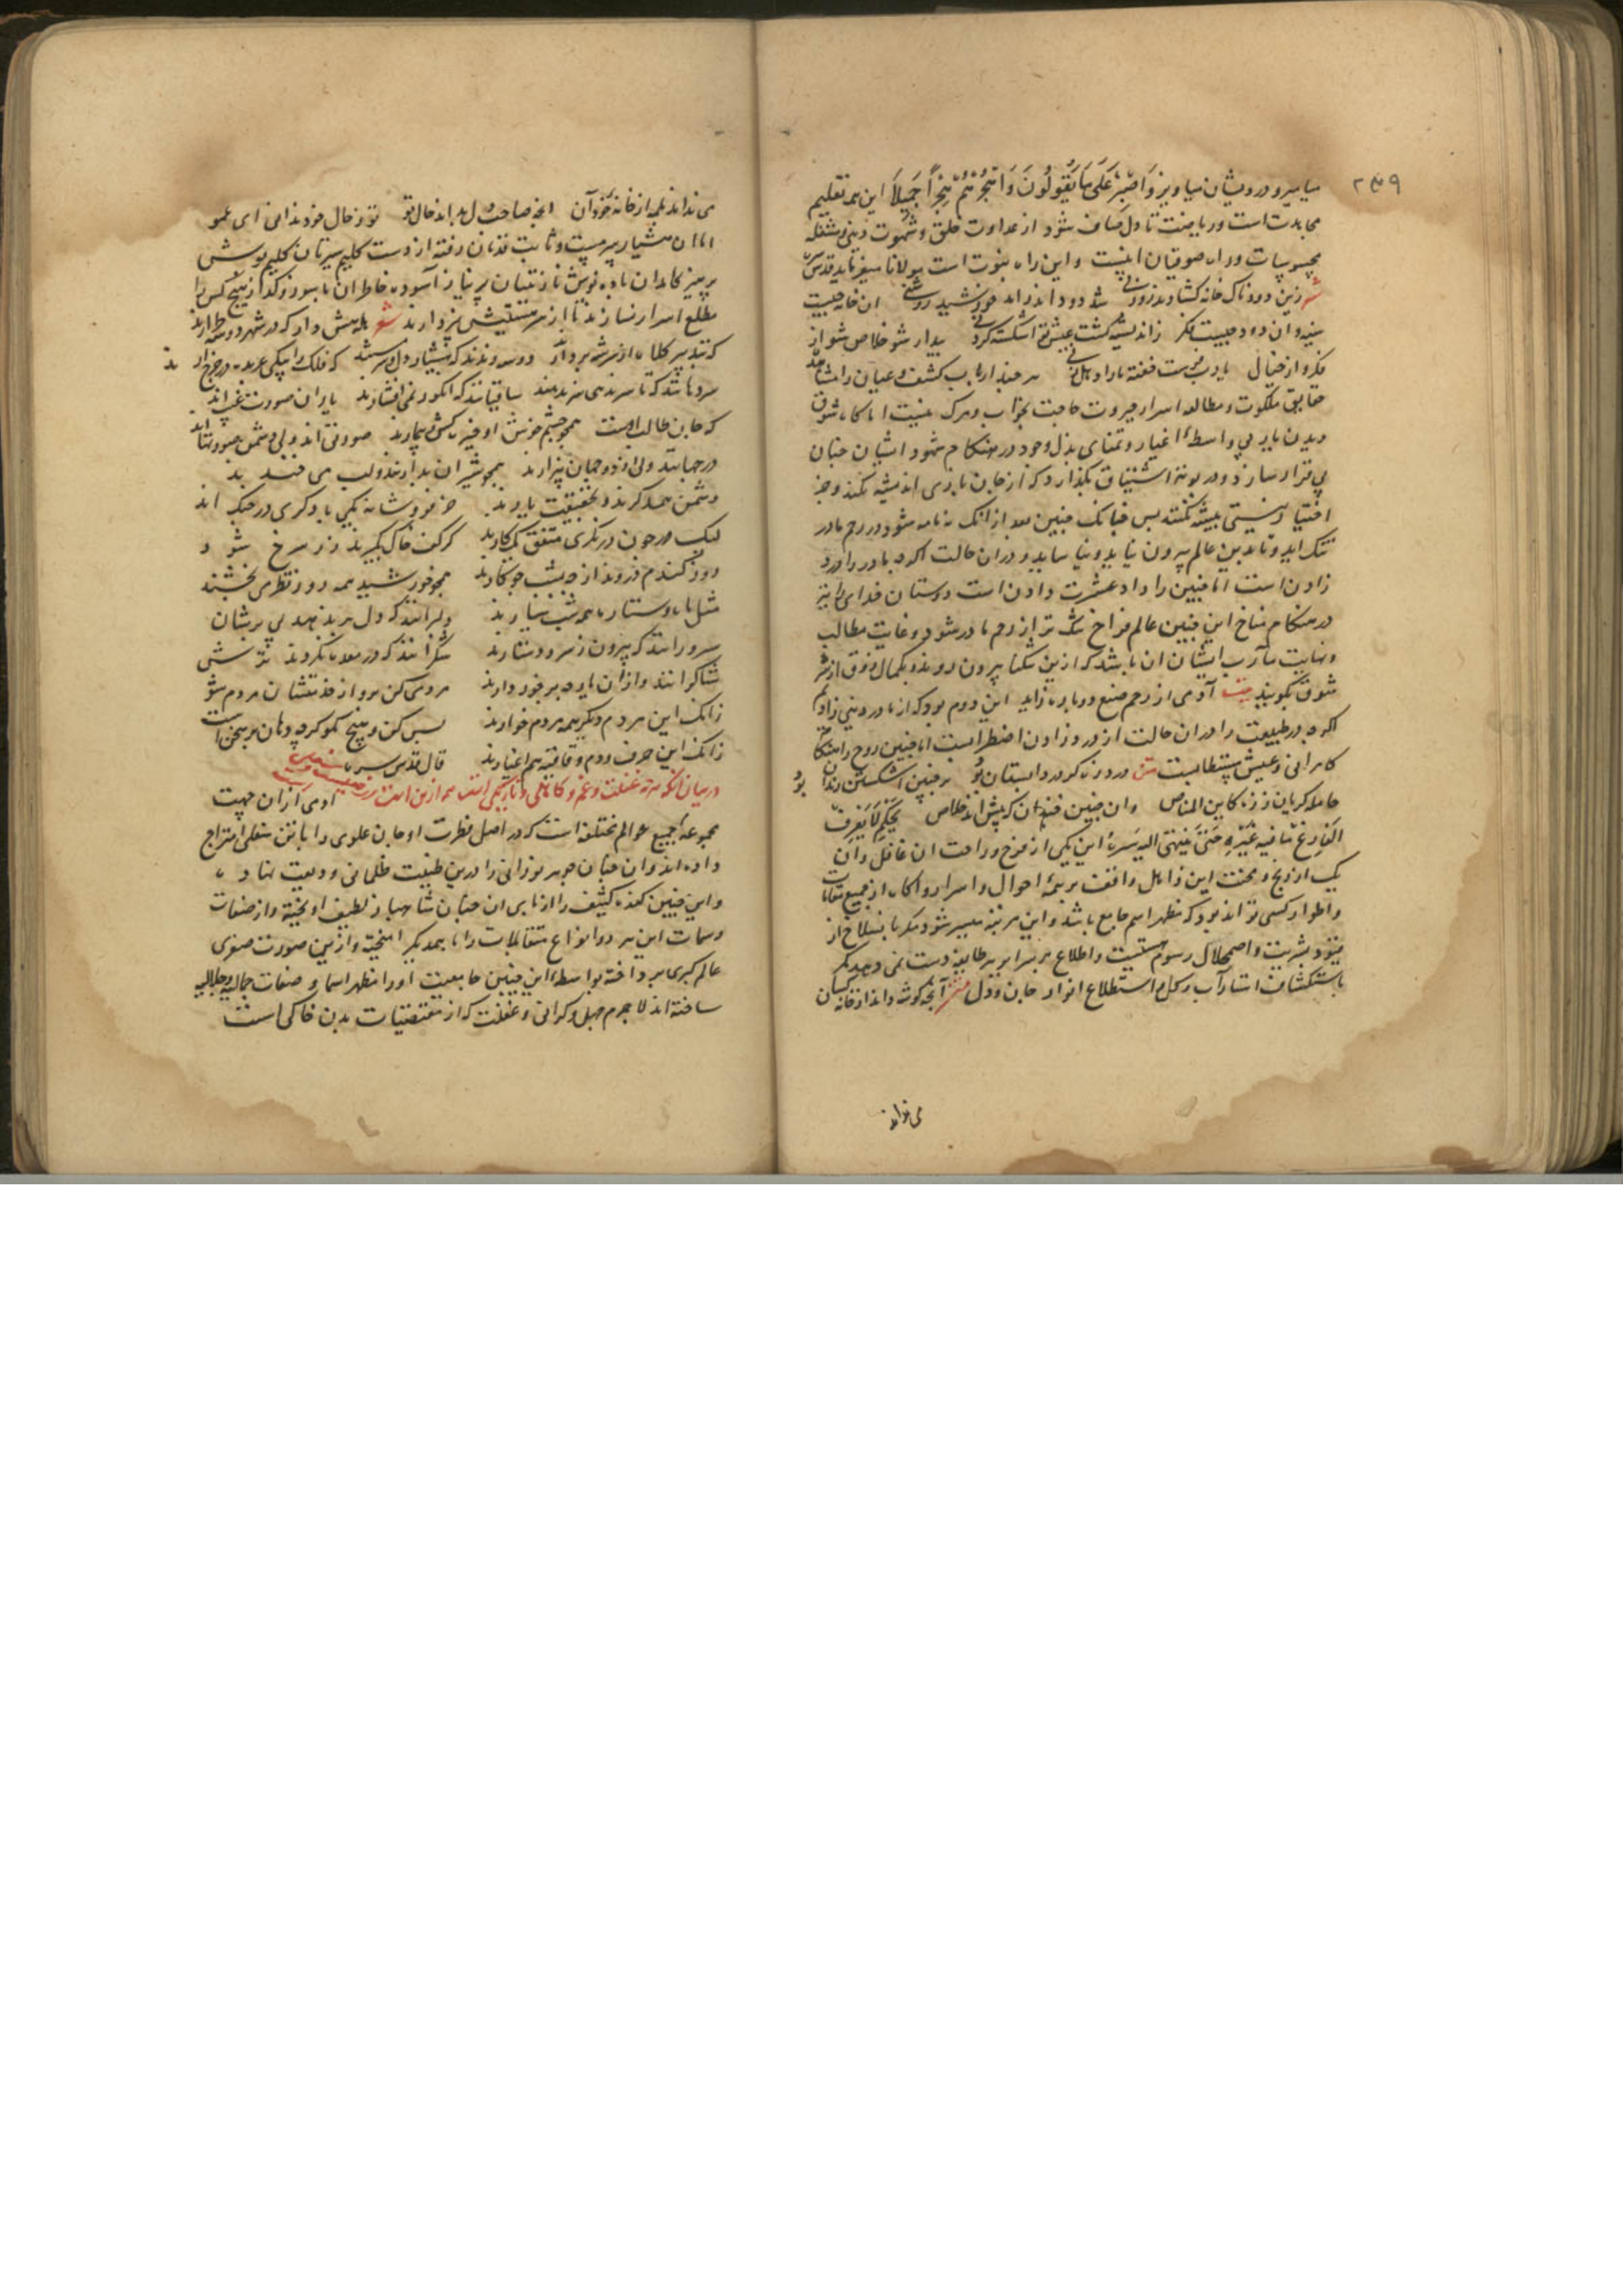 ۲۳۹
بیامیرو درویشان بیاویز وَاصْبِرْ عَلَی مَا یَقُولُونَ وَاهْجُرْهُمْ هَجْرًا جَمِیلًا این همه تعلیم
مجاهدت است و ریاضت تا دل صاف شود از عداوت خلق و شهوت دنیی و مشغله
محسوسات و راه صوفیان اینست و این راه نبوت است مولانا میفرماید قدس سره
شعر زین دودناک خانه گشادند روزنی شد دود و اندر آمد خورشید روشنی آن خانه چیست
سینه و آن دود چیست فکر زاندیشه گشت عیش تو اشکسته گردنی بیدار شو خلاص شو از
فکر و از خیال یارب فرست خفته ما را دهل زنی هر چند ارباب کشف و عیان را مشاهده
حقایق ملکوت و مطالعه اسرار جبروت حاجت بخواب و مرگ نیست اما گاه شوق
دیدن یار بی واسطهٔ اغیار و تمنای بذل وجود در هنگام شهود ایشان چنان
بی قرار سازد و در بوته اشتیاق بگدازد که از جان بازی اندیشه نکنند و جز
اختیار نیستی پیشه نکنند پس چنانک جنین بعد از انک نه ماهه شود در رحم مادر
تنگ آید و تا بدین عالم بیرون نیاید نیاساید و در آن حالت اگرچه مادر را درد
زادن است اما جنین را داد عشرت دادن است دوستان خدای را نیز
در هنگام مناخ این جنین عالم فراخ تنگ تر از رحم مادر شود و غایت مطالب
و نهایت مآرب ایشان آن باشد که ازین تنگنا بیرون روند و بکمال ذوق از سر
شوق گویند بیت آدمی از رحم صنع دوباره زاید این دوم بود که از مادر دنیی زادم
اگرچه طبیعت را در آن حالت از درد زادن اضطرابست اما جنین روح را هنگام
کامرانی و عیش بیشتابست متن درد زه گر درد آبستان بود بر جنین اشکستن زندان بود
حامله گریان ز زه کاین المناص وان جنین خندان که پیش آمد خلاص بحکم لَا یَعْرِفُ
الْفَارِغُ مَا فِیهِ غَیْرُهُ حَتّی یَنْتَهِی اِلَیه سَیرُهُ این یکی از فرح و راحت آن غافل و آن
یک از رنج و محنت این ذاهل واقف بر همهٔ احوال و اسرار و آگاه از جمیع مقامات
و اطوار کسی تواند بود که مظهر اسم جامع باشد و این مرتبه میسر نشود مگر بانسلاخ از
قیود بشریت و اضمحلال رسوم هستیت و اطلاع بر سرایر هر طایفه دست نمی دهد مگر
باستکشاف استار آب و گل و استطلاع انوار جان و دل متن آنچه کوسه داند از خانه کسان
می نداند
می نداند بلمه از خانه خود آن آنچه صاحب دل بداند حال تو تو ز حال خود ندانی ای عمو
اما آن هشیار سرمست و ثابت قدمان رفته از دست کلیم سیرتان گلیم پوش
پرهیزکاران باده نوش نازنینان پرنیاز آسوده خاطران با سوز و گداز هیچ کس را
مطلع اسرار نسازند تا از سر هستیش نپردازند شعر بله هش دار که در شهر دو سه طرارند
که بتدبیر کلاه از سر شه بردارند دو سه رندند که هشیار دل و سرمستند که فلک را بیکی عربده در چرخ آرند
سردهانند که تا سر ندهی سر ندهند ساقیانند که انگور نمی افشارند یار آن صورت غیبند
که جان طالب اوست همچو چشم خوش او خیره کش و بیمارند صورتی اند ولی دشمن صورتهااند
در جهانند ولی از دو جهان بیزارند همچو شیران بدرانند و لب می خندند
دشمن همدگرند و بحقیقت یارند خرفروشانه یکی با دگری در جنگ اند
لیک چون درنگری متفق یک کارند گر کف خاک بگیرند زر سرخ شود
روز گندم دروند از چه بشب جو کارند همچو خورشید همه روز نظر می بخشند
مثل ماه و ستاره همه شب سیارند دلبرانند که دل برندهند بی برشان
سرورانند که بیرون ز سر و دستارند شکرانند که در معده نگردند ترش
شاکرانند و از آن یار چه برخوردارند مردمی کن برو از خدمتشان مردم شو
زانک این مردم دیگر همه مردم خوارند بس کن و بیش مگو گرچه دهان پر سخن است
زانک این حرف و دم و قافیه هم اغیارند قال قدس سره
در بیان آنکه هرچه غفلت و غم و کاهلی و تاریکی است همه از تن است آدمی از آن جهت
مجموعهٔ جمیع عوالم مختلفه است که در اصل فطرت او جان علوی را با تن سفلی امتزاج
داده اند و آن چنان جوهر نورانی را درین طینت ظلمانی ودیعت نهاده
و این چنین کنده کثیف را از پای آن چنان شاهباز لطیف آویخته و از صفات
و سمات این هر دو انواع متقابلات را با همدیگر آمیخته و ازین صورت صغری
عالم کبری پرداخته بواسطهٔ این چنین جامعیت او را مظهر اسما و صفات جمالیه و جلالیه
ساخته اند لاجرم جهل و گرانی و غفلت که از مقتضیات بدن خاکی است